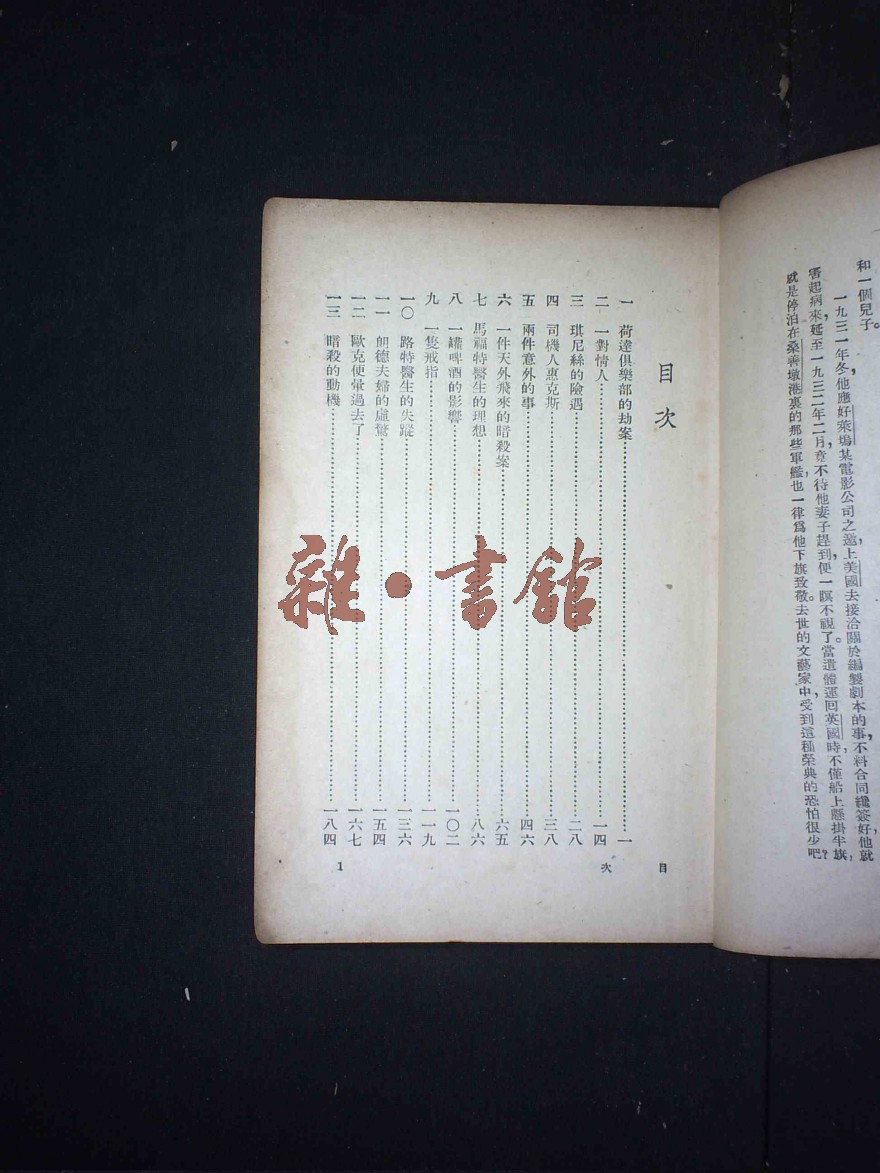 和一個兒子。
一九三一年冬他應好萊塢某電影公司之邀上美國去接洽關於編製劇本的事，不料合同纔簽好，他就
害起病來，延至一九三二年二月，竟不待他妻子趕到，便一瞑不視了。當遺體運回英國時，不僅船上懸掛半旗，
就是停泊在桑善墩港裏的那些軍艦也一律爲他下旗致敬。去世的文藝家中，受到這種榮典的恐怕很少吧？
目次
一 荷達俱樂部的劫案 一
二 一對情人 一四
三 琪尼絲的險遇 二八
四 司機人惠克斯 三八
五 兩件意外的事 四六
六 一件天外飛來的暗殺案 六五
七 馬福特醫生的理想 八六
八 一罐啤酒的影響 一〇二
九 一隻戒指 一一九
一〇 路特醫生的失蹤 一三六
一一 朗德夫婦的虛驚 一五四
一二 歐克便暈過去了 一六七
一三 暗殺的動機 一八四
目次
1
雜·書館